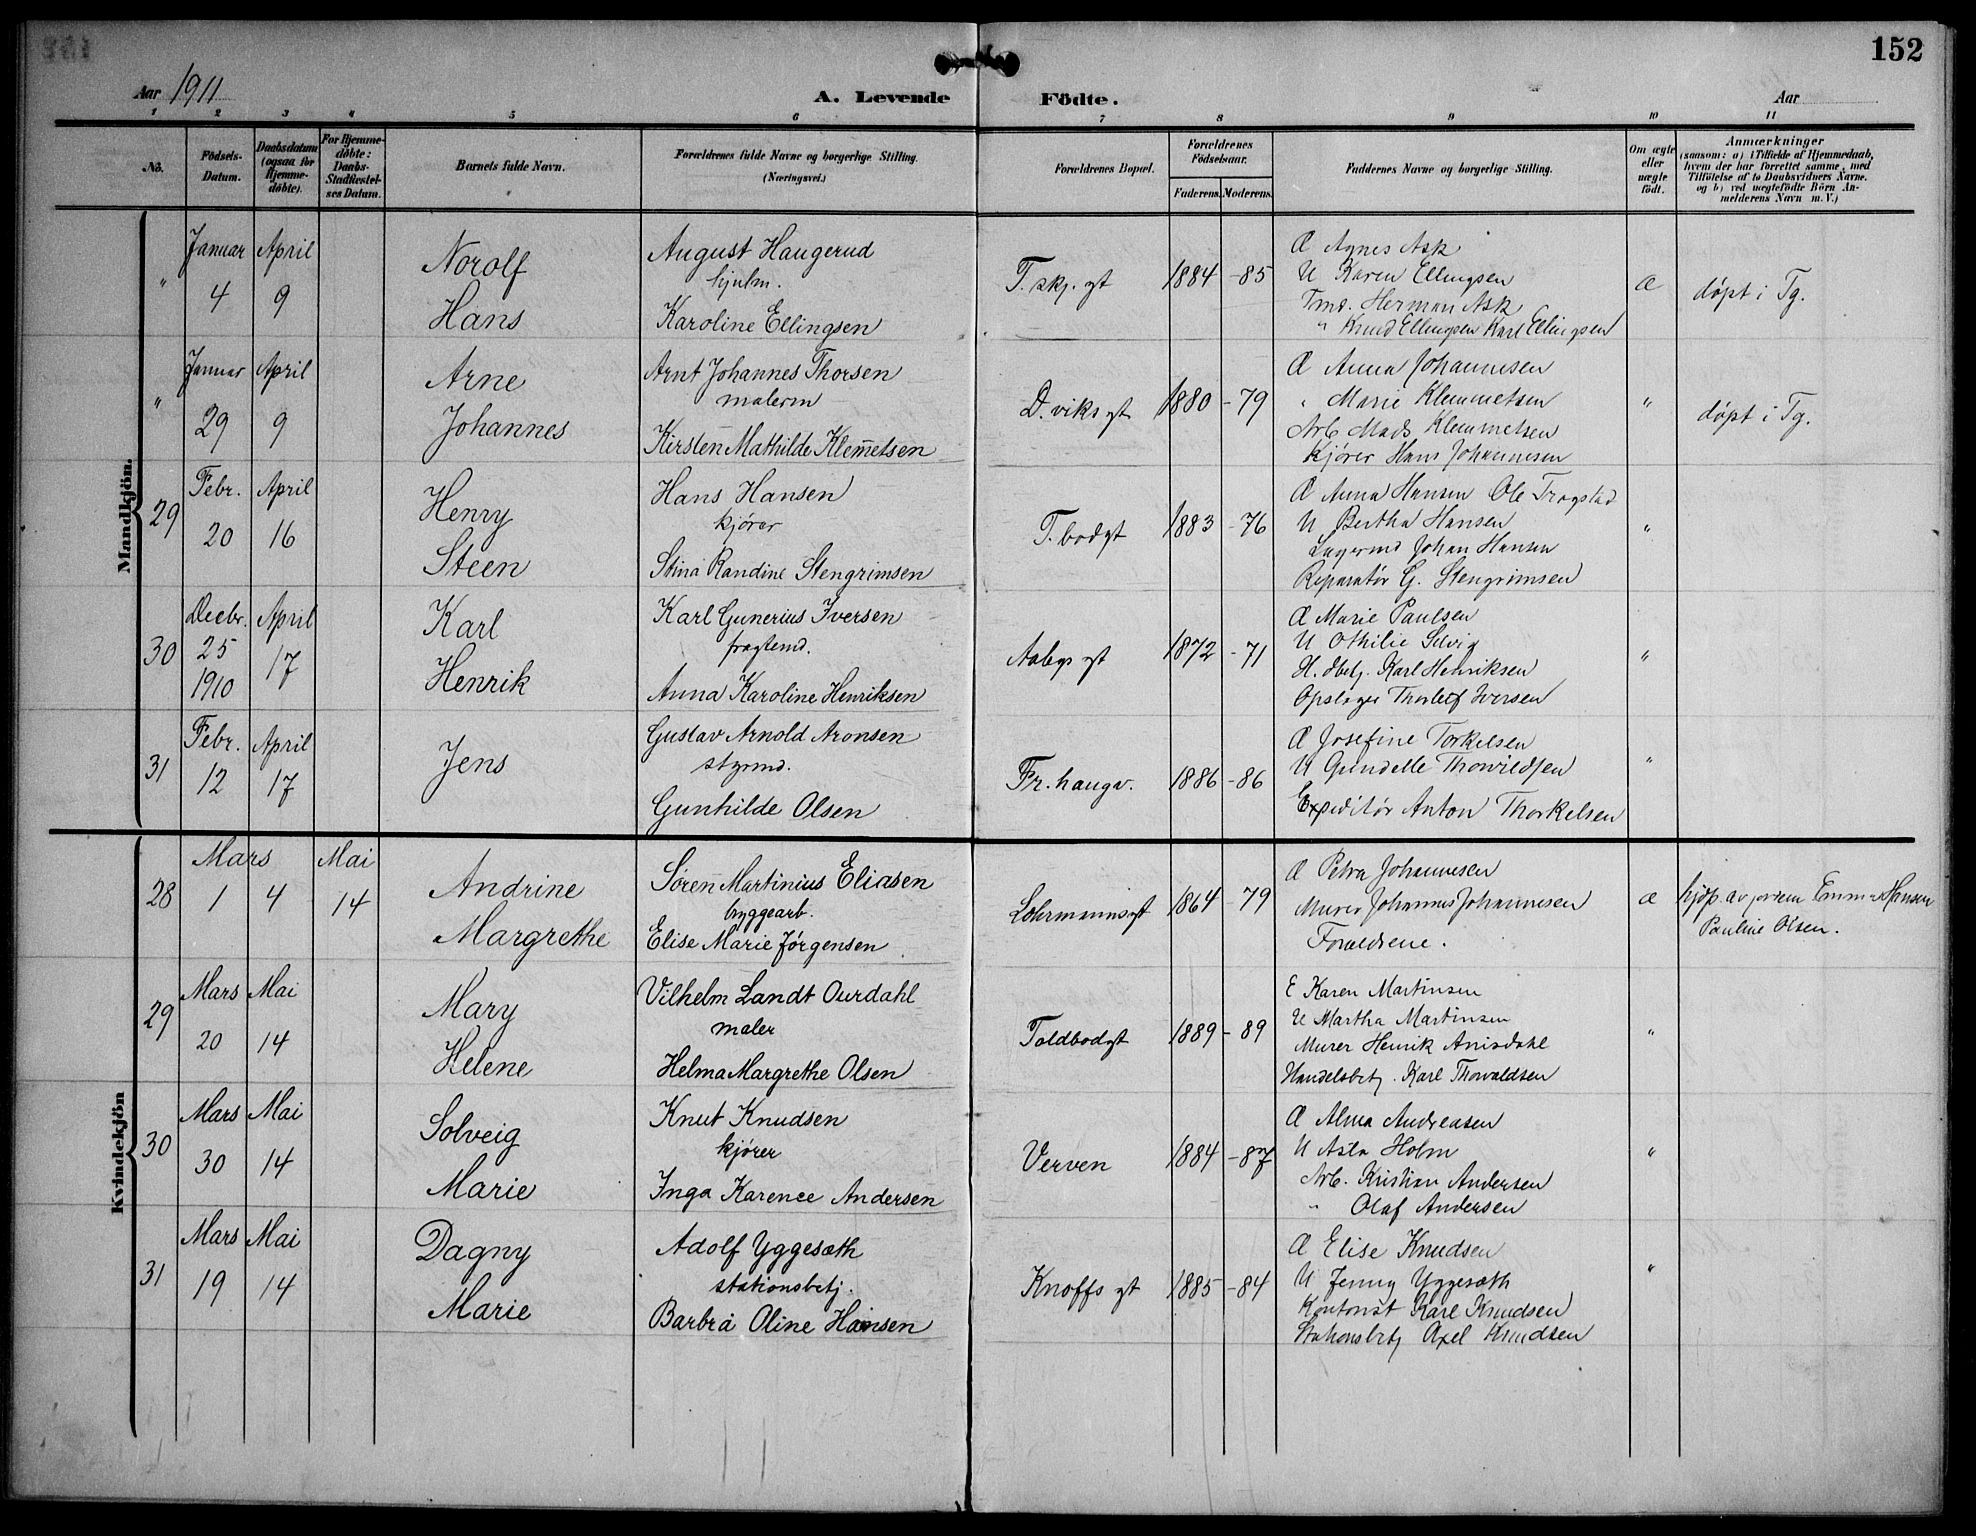 152
Aar 1911
A. Levende Födte.
Aar
1 2 3 4 5 6 7 8 9 10 11
No.
Födsels-
Datum.
Daabsdatum
(ogsaa for
Hjemme-
döbte).
For Hjemme-
döbte:
Daabs-
Stadfæstel-
ses Datum.
Barnets fulde Navn.
Forældrenes fulde Navne og borgerlige Stilling.
(Næringsvei.)
Forældrenes Bopæl.
Forældrenes
Födselsaar.
Faderens. Moderens.
Faddernes Navne og borgerlige Stilling.
Om ægte
eller
uægte
födt.
Anmærkninger
(saasom: a) i Tilfælde af Hjemmedaab,
hvem der har forrettet samme, med
Tilföielse af to Daabsvidners Navne,
og b) ved uægtefödte Börn An-
melderens Navn m. V.)
Mandkjön.
" Januar 4 April 9
Norolf
Hans
August Haugerud
hjulm.
Karoline Ellingsen
T. skj. gt 1884 -85
Æ Agnes Ask
U Karen Ellingsen
Tmd. Herman Ask
" Knud Ellingsen Karl Ellingsen
æ døpt i Tg.
" Januar 29 April 9
Arne
Johannes
Arnt Johannes Thorsen
malerm
Kirsten Mathilde Klemetsen
D. viks gt 1880 -79
Æ Anna Johannesen
" Marie Klemmetsen
Arb. Mads Klemmetsen
Kjører Hans Johannesen
" døpt i Tg.
29 Febr. 20 April 16
Henry
Steen
Hans Hansen
kjører
Stina Randine Stengrimsen
T. bodgt 1883 -76
Æ Anna Hansen Ole Trogstad
U Bertha Hansen
Lagermd Johan Hansen
Reparatør G. Stengrimsen
"
30 Decbr. 25 1910 April 17
Karl
Henrik
Karl Gunerius Iversen
fragtemd.
Anna Karoline Henriksen
Aabys gt 1872 -71
Æ Marie Paulsen
U Othilie Solvig
H. dbetj. Karl Henriksen
Opslager Thorleif Iversen
"
31 Febr. 12 April 17
Jens
Gustav Arnold Aronsen
styrmd.
Gunhilde Olsen
Fr. haugv. 1886 -86
Æ Josefine Torkelsen
U Gundelle Thorvildsen
Expeditør Anton Thorkelsen
"
Kvindekjön
28 Mars 1 4 Mai 14
Andrine
Margrethe
Søren Martinius Eliasen
byggearb.
Elise Marie Jørgensen
1864 79
Æ Petra Johannesen
Murer Johannes Johannesen
Forældrene.
æ hjdp. av jordem Emma Hansen
Pauline Olsen.
29 Mars 20 Mai 14
Mary
Helene
Vilhelm Landt Ourdahl
maler
Helma Margrethe Olsen
Toldbodgt 1889 -89
E Karen Martinsen
U Martha Martinsen
Murer Henrik Anisdahl
Handelsbetj. Karl Thorvaldsen
"
30 Mars 30 Mai 14
Solveig
Marie
Knut Knudsen
kjører
Inga Karence Andersen
Verven 1884 -87
Æ Alma Andreasen
U Asta Holm
Arb. Kristian Andersen
" Olaf Andersen
"
31 Mars 19 Mai 14
Dagny
Marie
Adolf Yggesæth
stationsbetj.
Barbra Oline Hansen
Knoffs gt 1885 -84
Æ Elise Knudsen
U Jenny Yggesæth
Kontorist Karl Knudsen
Stationsbetj Axel Knudsen
"